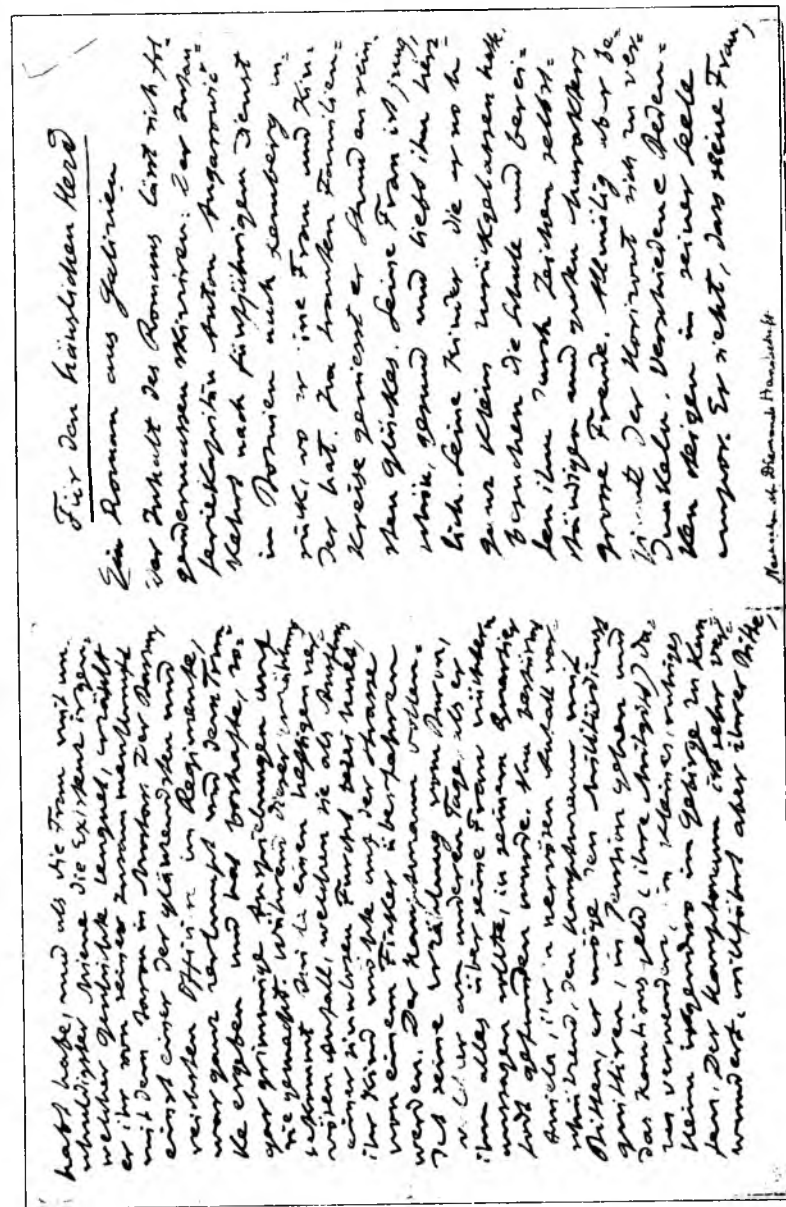 Für den häuslichen Herd
Ein Roman aus Galizien
Der Inhalt des Romans lässt sich fol=
gendermassen skizziren: Der Infan=
teriekapitän Anton Angarowič
kehrt nach fünfjährigem Dienst
in Bosnien nach Lemberg zu=
rück, wo er seine Frau und Kin=
der hat. Im trauten Familien=
kreise geniesst er Stunden rein=
sten Glückes. Seine Frau ist jung,
schön, gesund und liebt ihn herz=
lich. Seine Kinder die er noch
ganz klein zurückgelassen hatte,
besuchen die Schule und berei=
ten ihm durch Zeichen selbst=
ständigen und guten Charakters
grosse Freude. Allmälig aber be=
ginnt der Horizont sich zu ver=
dunkeln. Verschiedene Beden=
ken steigen in seiner Seele
empor. Er sieht, dass seine Frau,
Handschrift
habt habe, und als die Frau mit un=
schuldigster Miene die Existenz irgen=
welcher Geschichte leugnet, erzählt
er ihr von seiner Zusammenkunft
mit dem Baron in Mostar. Der Baron,
einst einer der glänzendsten und
reichsten Offiziere im Regimente,
war ganz verlumpt und dem Trun=
ke ergeben und hat boshafte, so=
gar grimmige Anspielungen auf
sie gemacht. Während dieser Erzählung
bekommt die einen heftigen ner=
vösen Anfall, welchen sie als Ausfluss
einer sinnlosen Furcht darstellt,
ihr Kind möchte auf der Strasse
von einem Fiaker überfahren
werden. Der Hauptmann vollen=
det seine Erzählung vom Baron,
welcher am anderen Tage, als er
ihm alles über seine Frau nüchtern
aussagen sollte, in seinem Quartier
todt gefunden wurde. Nun bestürmt
Aniela, ihren nervösen Anfall vor=
schützend, den Hauptmann mit
Bitten, er möge den Militärdienst
quittiren, in Pension gehen und
das Kautionsgeld (ihre Mitgift) da=
zu verwenden, ein kleines, ruhiges
Heim irgendwo im Gebirge zu kau=
fen. Der Hauptmann ist sehr ver=
wundert, willfährt aber ihrer Bitte,